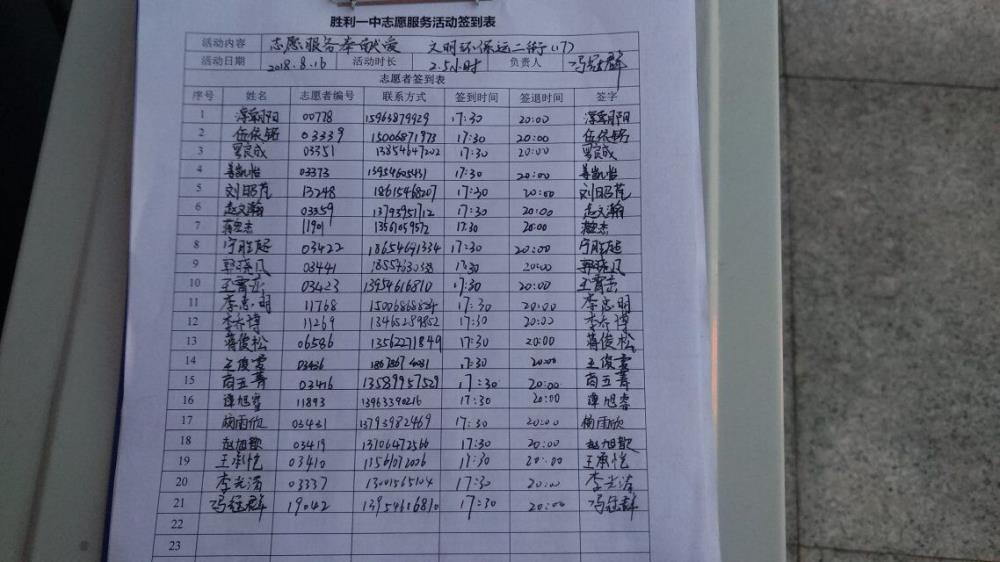 胜利一中志愿服务活动签到表
活动内容 志愿服务奉献爱 文明环保运二街(17)
活动日期 2018.8.16 活动时长 2.5小时 负责人
志愿者签到表
序号 姓名 志愿者编号 联系方式 签到时间 签退时间 签字
1 00778 15963879929 17:30 20:00
2 伍依铭 03339 15006871973 17:30 20:00 伍依铭
3 03351 13854647202 17:30 20:00
4 姜凯怡 03373 13954605431 17:30 20:00 姜凯怡
5 刘昭芃 13248 18615468207 17:30 20:00 刘昭芃
6 赵文瀚 03359 13793951712 17:30 20:00 赵文瀚
7 11901 13561059572 17:30 20:00
8 宁胜超 03422 18654691334 17:30 20:00 宁胜超
9 郭晓凡 03441 17:30 20:00 郭晓凡
10 03423 13954616810 17:30 20:00
11 李思明 11768 15006868824 17:30 20:00 李思明
12 李乔博 11269 13465289852 17:30 20:00 李乔博
13 蒋俊松 06536 13562271849 17:30 20:00 蒋俊松
14 王俊雯 03436 17:30 20:00 王俊雯
15 商玉菁 03416 13589957529 17:30 20:00 商玉菁
16 谭旭睿 11893 13963390216 17:30 20:00 谭旭睿
17 杨雨欣 03431 13793982469 17:30 20:00 杨雨欣
18 赵旭歌 03419 13706472566 17:30 20:00 赵旭歌
19 王承恺 03410 17:30 20:00 王承恺
20 李光涛 03337 13001565104 17:30 20:00 李光涛
21 19042 13954616810 17:30 20:00
22
23